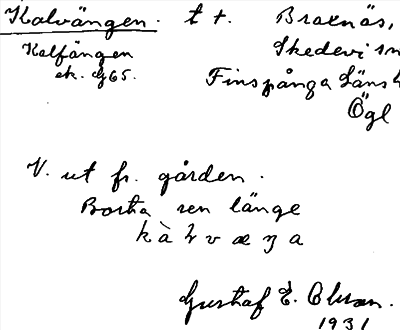 Kalvängen. t t. Braxnäs,
Kalfängen Skedevi sn
ek. G 65. Finspånga läns h
Ögl
V. ut fr. gården.
Borta sen länge
Gustaf E. Olsson.
1931